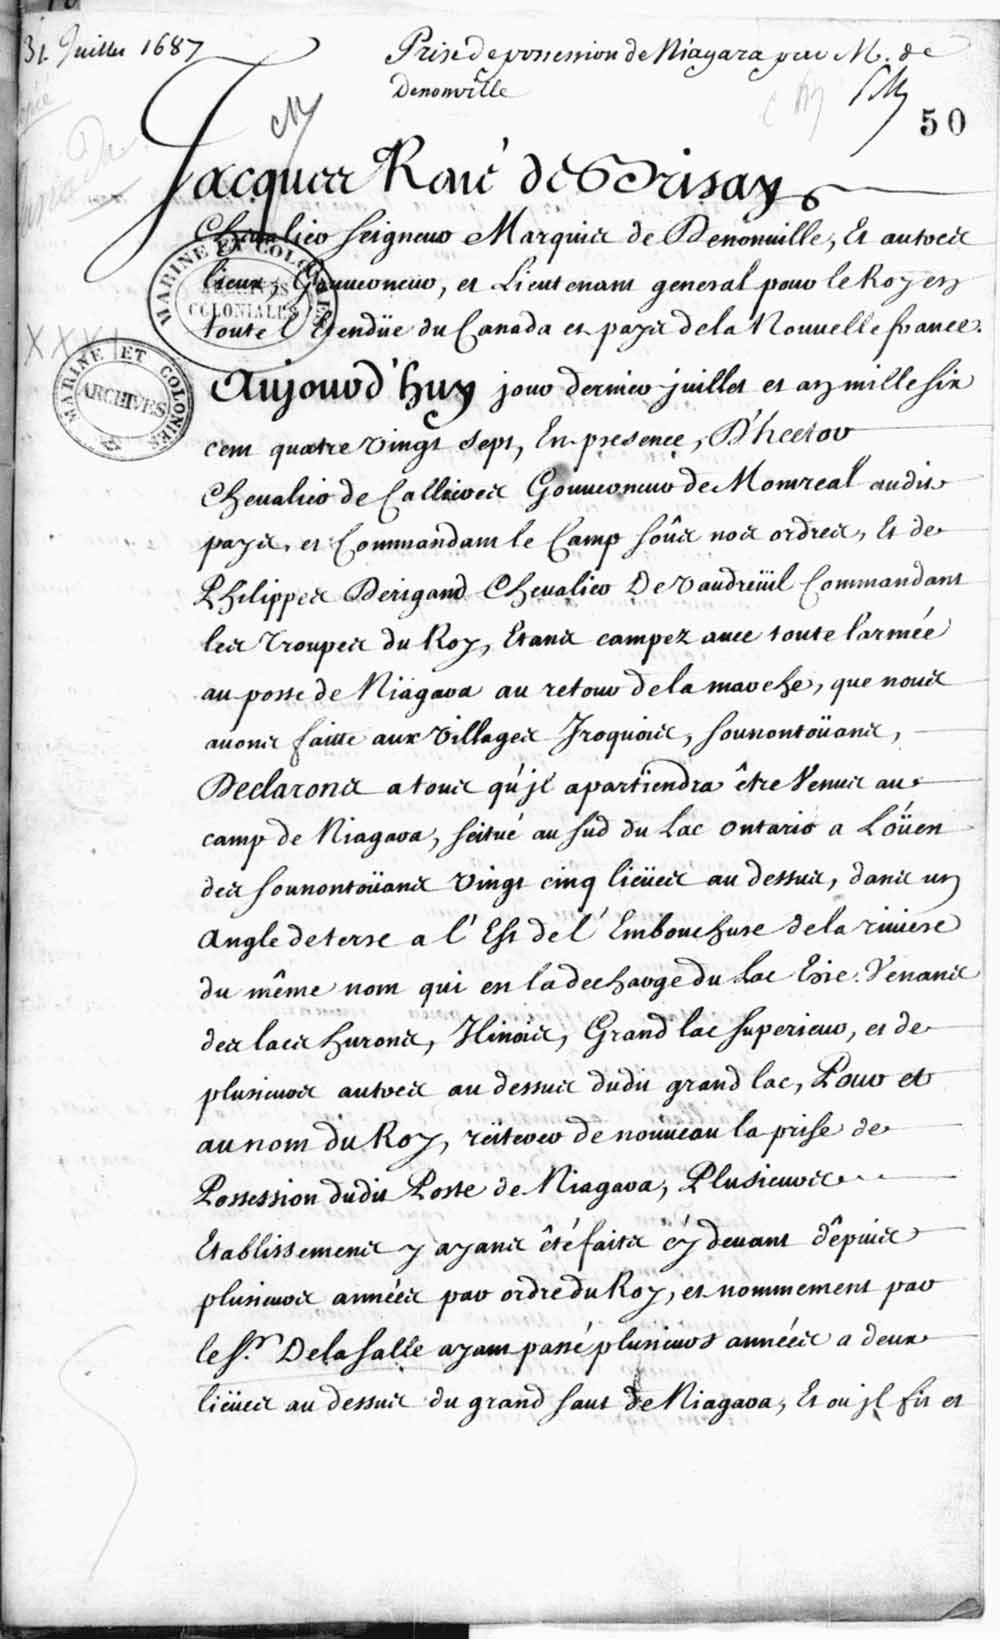 31. Juillet 1687
Prise de possession de Niagara par M. de
Denonville
50
Jacques René de Brisay
Chevalier seigneur Marquis de Denonuille, Et autres
lieux, Gouuerneur, et Lieutenant general pour le Roy en
toute l'Etendüe du Canada et pays de la Nouuelle france.
MARINE ET COLONIES
ARCHIVES COLONIALES
XXXI
MARINE ET COLONIES
ARCHIVES
Aujourd'huy jour dernier juillet et an mille six
cent quatre vingt sept, En presence, D'hector
Chevalier de Callieres Gouuerneur de Montreal audit
pays, et Commandant le Camp soûs nos ordres, Et de
Philippes Derigaud Chevalier De Vaudreüil Commandant
les Troupes du Roy, Etans campez auec toute larmée
au poste de Niagara au retour de la marche, que nous
auons faitte aux Villages Jroquois, sounontoüans,
Declarons a tous qu'jl apartiendra être Venus au
camp de Niagara, seitué au sud du Lac ontario a Loüen
des sounontoüans vingt cinq lieües au dessus, dans un
angle de terre a l'Est de l'Embouchure de la riuiere
du même nom qui en la decharge du Lac Erie Venans
des lacs hurons, Ilinois, Grand lac superieur, et de
plusieurs autres au dessus dudit grand lac, Pour et
au nom du Roy, reïterer de nouueau la prise de
Possession dudit Poste de Niagara, Plusieurs
Etablissemens y ayans êté faits cy deuant dêpuis
plusieurs années par ordre du Roy, et nommement par
le Sr. Delasalle ayant passé plusieurs années a deux
lieües au dessus du grand saut de Niagara, Et ou jl fit et